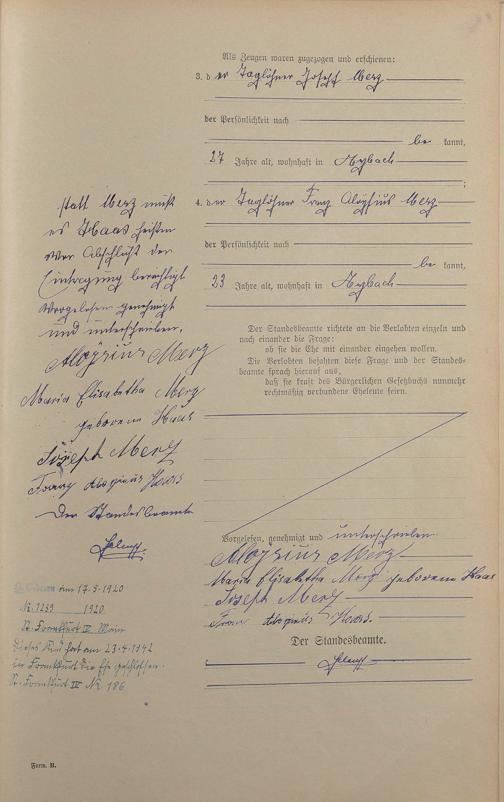 Als Zeugen waren zugezogen und erschienen:
3. der Taglöhner Joseph Merz
der Persönlichkeit nach
be kannt,
27 Jahre alt, wohnhaft in Aÿbach
;
4. der Taglöhner Franz Aloÿsius Merz
der Persönlichkeit nach
be kannt,
23 Jahre alt, wohnhaft in Aÿbach
Der Standesbeamte richtete an die Verlobten einzeln und
nach einander die Frage:
ob sie die Ehe mit einander eingehen wollen.
Die Verlobten bejahten diese Frage und der Standes-
beamte sprach hierauf aus,
daß sie kraft des Bürgerlichen Gesetzbuchs nunmehr
rechtmäßig verbundene Eheleute seien.
Vorgelesen, genehmigt und unterschrieben
Aloÿsius Merz
Maria Elisabetha Merz geborene Haas
Joseph Merz
Franz Aloysius Haas.
Der Standesbeamte.
statt Merz muß
es Haas heißen
vor Abschluß der
Eintragung berichtigt
Vorgelesen genehmigt
und unterschrieben.
Aloÿsius Merz
Maria Elisabetha Merz
geborene Haas
Joseph Merz
Franz Aloysius Haas
Der Standesbeamte
am 17.5.1920
Nr. 1239 1920
St. Frankfurt IV Main
Dieses Kind hat am 23.4.1942
in Frankfurt die Ehe geschlossen.
St. Frankfurt IV Nr. 186
Form. B.